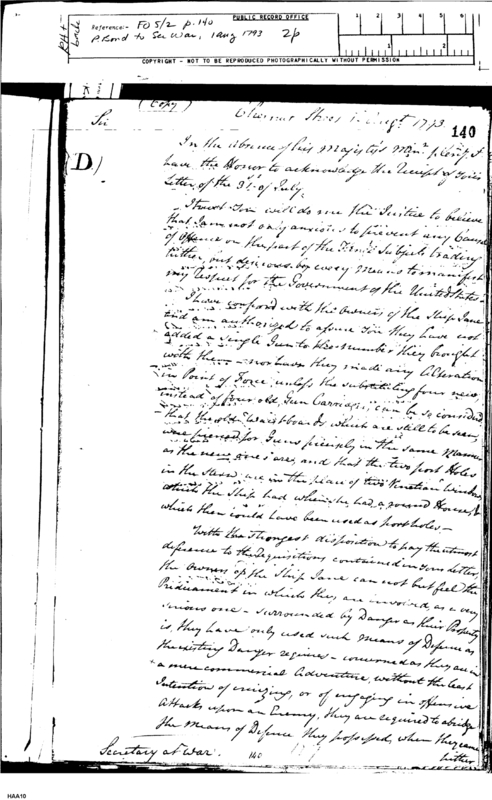 PUBLIC RECORD OFFICE
Reference:- FO 5/2 p. 140
P Bond to Sec War, 1 Aug 1793
2p
1 2 3 4 5 6
1 2
COPYRIGHT - NOT TO BE REPRODUCED PHOTOGRAPHICALLY WITHOUT PERMISSION
(Copy)
Chesnut Street 1. Augt. 1793
140
Sir
(D)
In the absence of his Majesty's I
have the Honor to acknowledge the Receipt of your
Letter of the 31. of July.
I trust You will do me the Justice to believe
that I am not only anxious to prevent any Cause
of Offence on the part of the Subjects trading
hither, but desirous by every Means to manifest
my Respect for the Government of the United States.
I have with the Owners of the Ship Jane
and am authorized to assure You they have not
added a single Gun to the number they brought
with them — nor have they made any Alteration
in Point of Force, unless the substituting four new,
instead of four old Gun Carriages, can be so considered,
that the old Waistboards, which are still to be seen,
were pierced for Guns precisely in the same Manner
as the new ones are, and that the two port Holes
in the Stern, are in the place of two Venetian Windows
which the Ship had when she had a round House, &
which then could have been used as port holes —
With the strongest disposition to pay the utmost
deference to the Requisitions contained in your Letter,
the Owners of the Ship Jane can not but feel the
Predicament in which they are involved, as a very
serious one — surrounded by Danger as their Property
is, they have only used such Means of Defence as
the existing Danger requires — concerned as they are in
a mere commercial Adventure, without the least
Intention of cruizing, or of engaging in offensive
Attacks upon an Enemy, they are required to abridge
the Means of Defence they possessed, when they came
hither
Secretary at War.
140
HAA10